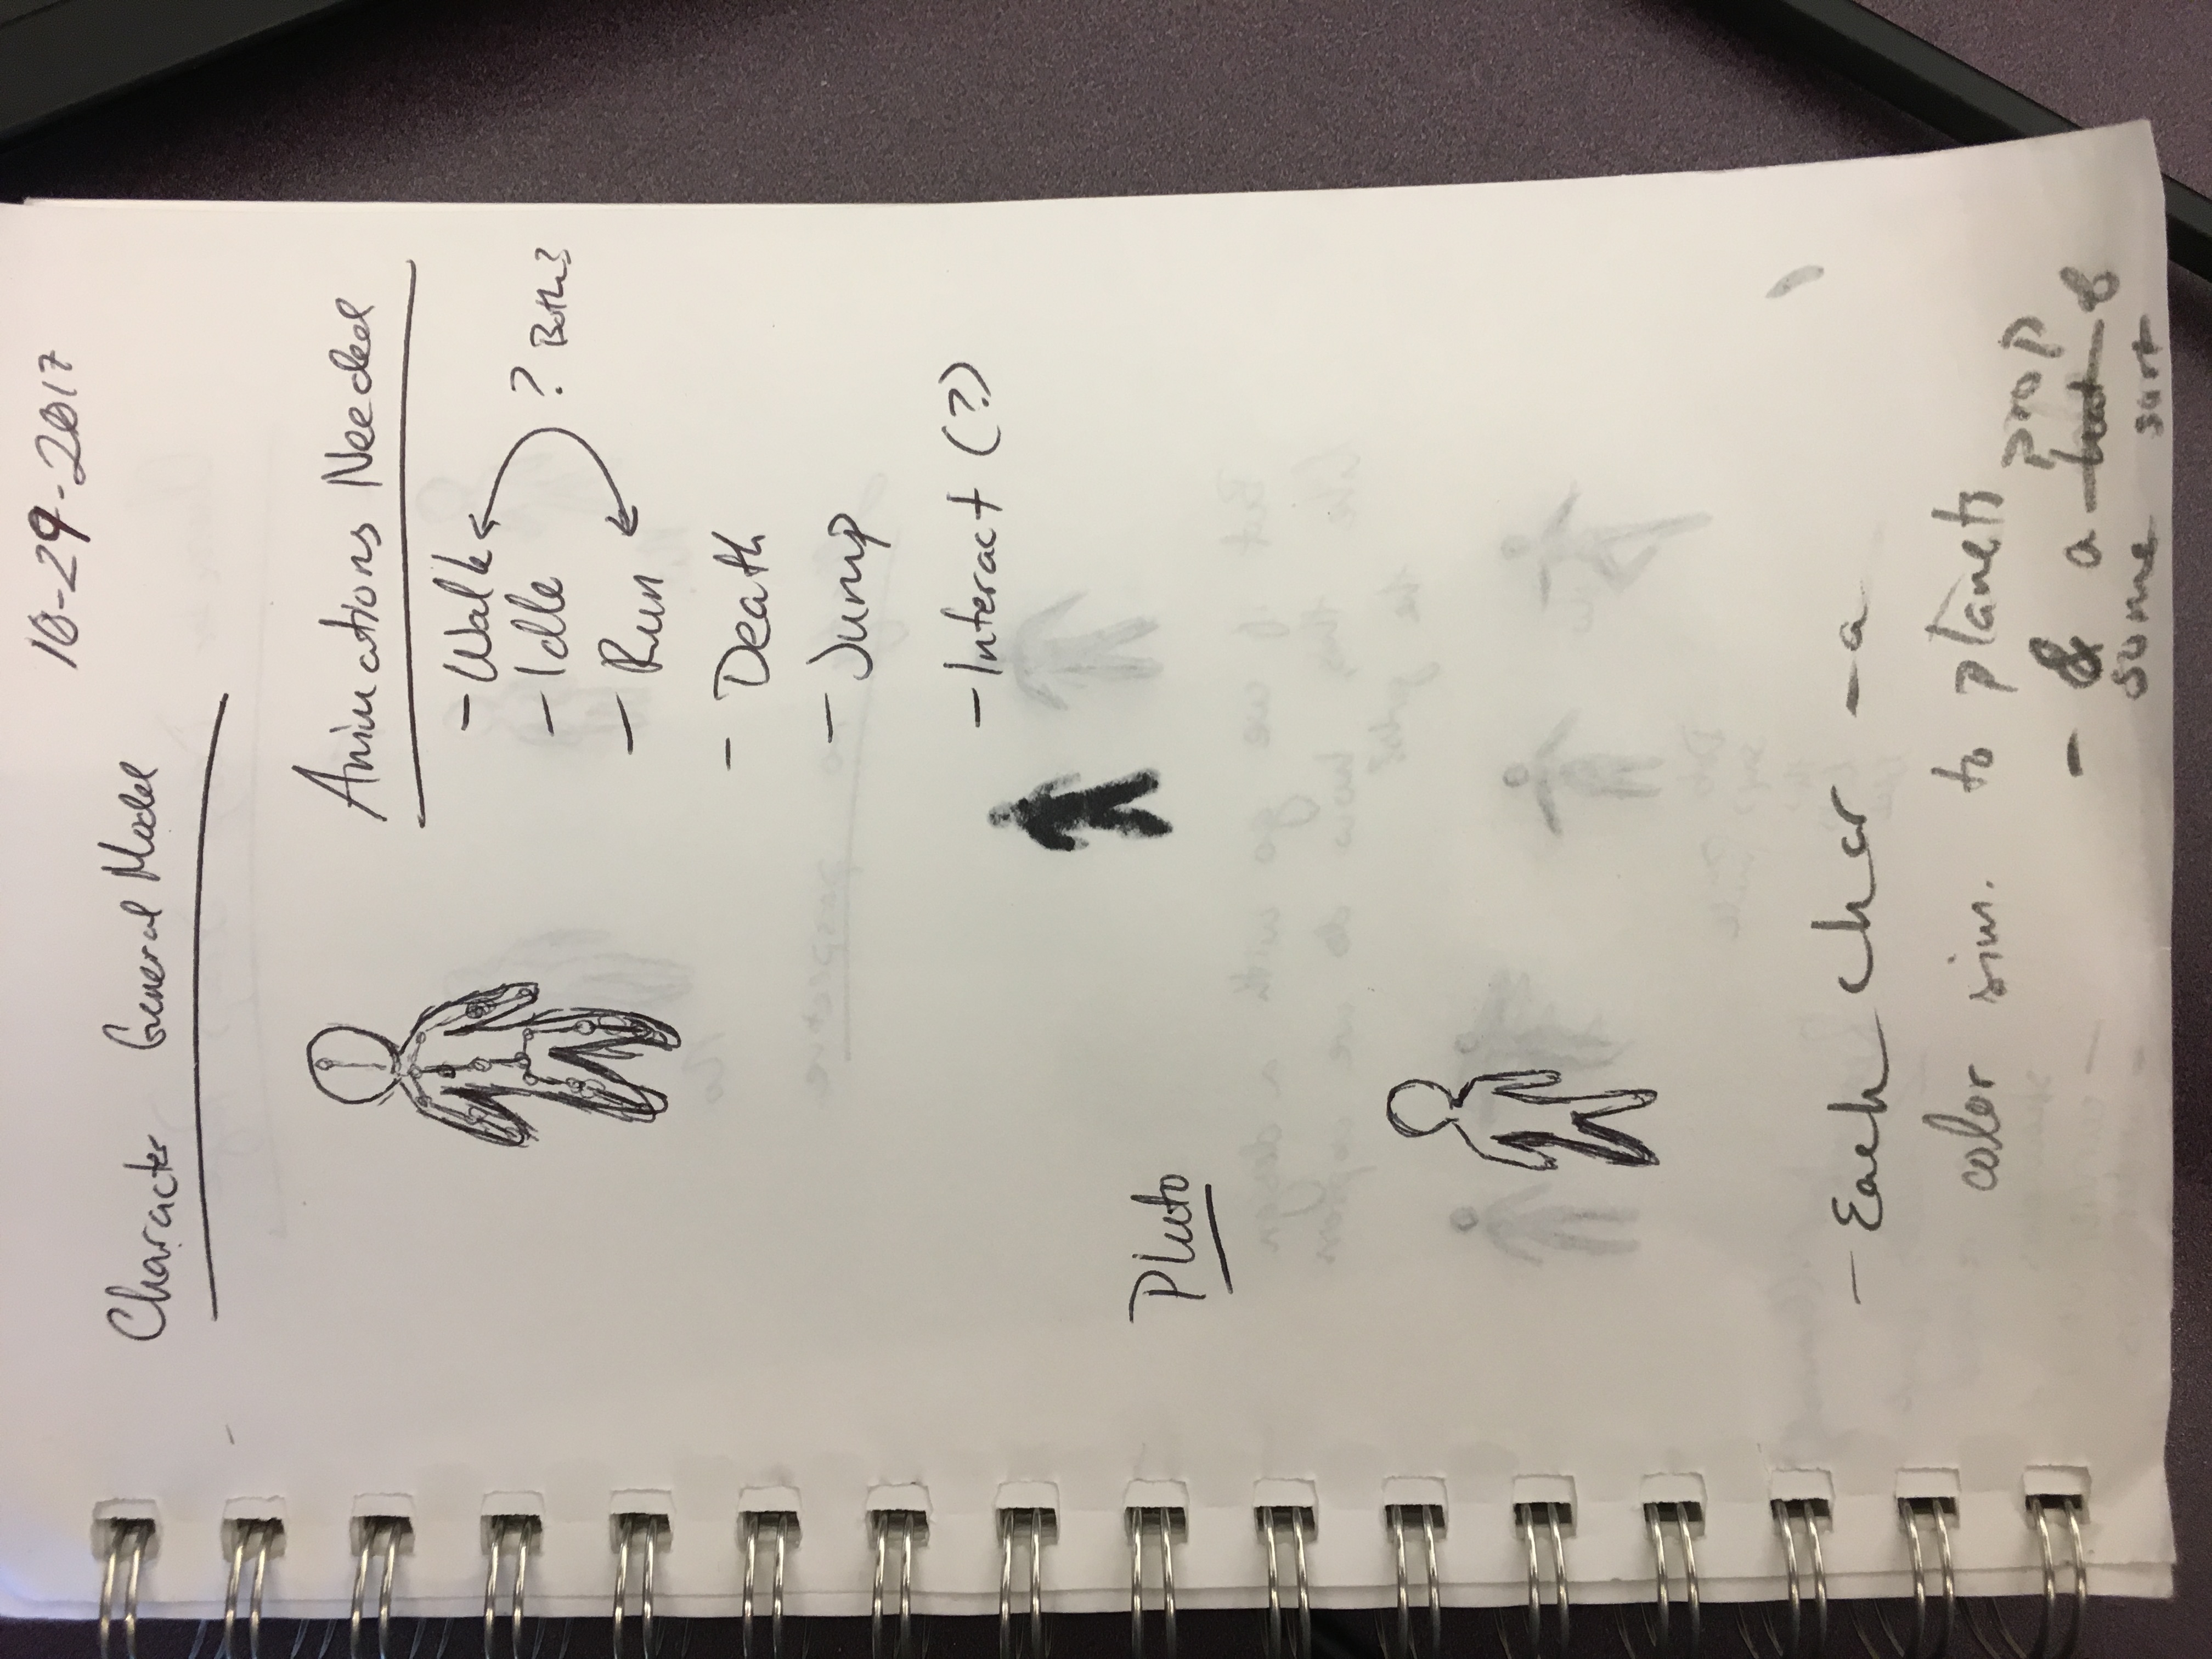 10-29-2017
Character General Model
Animations Needed
- Walk
- Idle
? Both?
- Run
- Death
- Jump
- Interact (?)
Pluto
- Each char - a
color sim. to planets
prop
- & a hat of
some sort